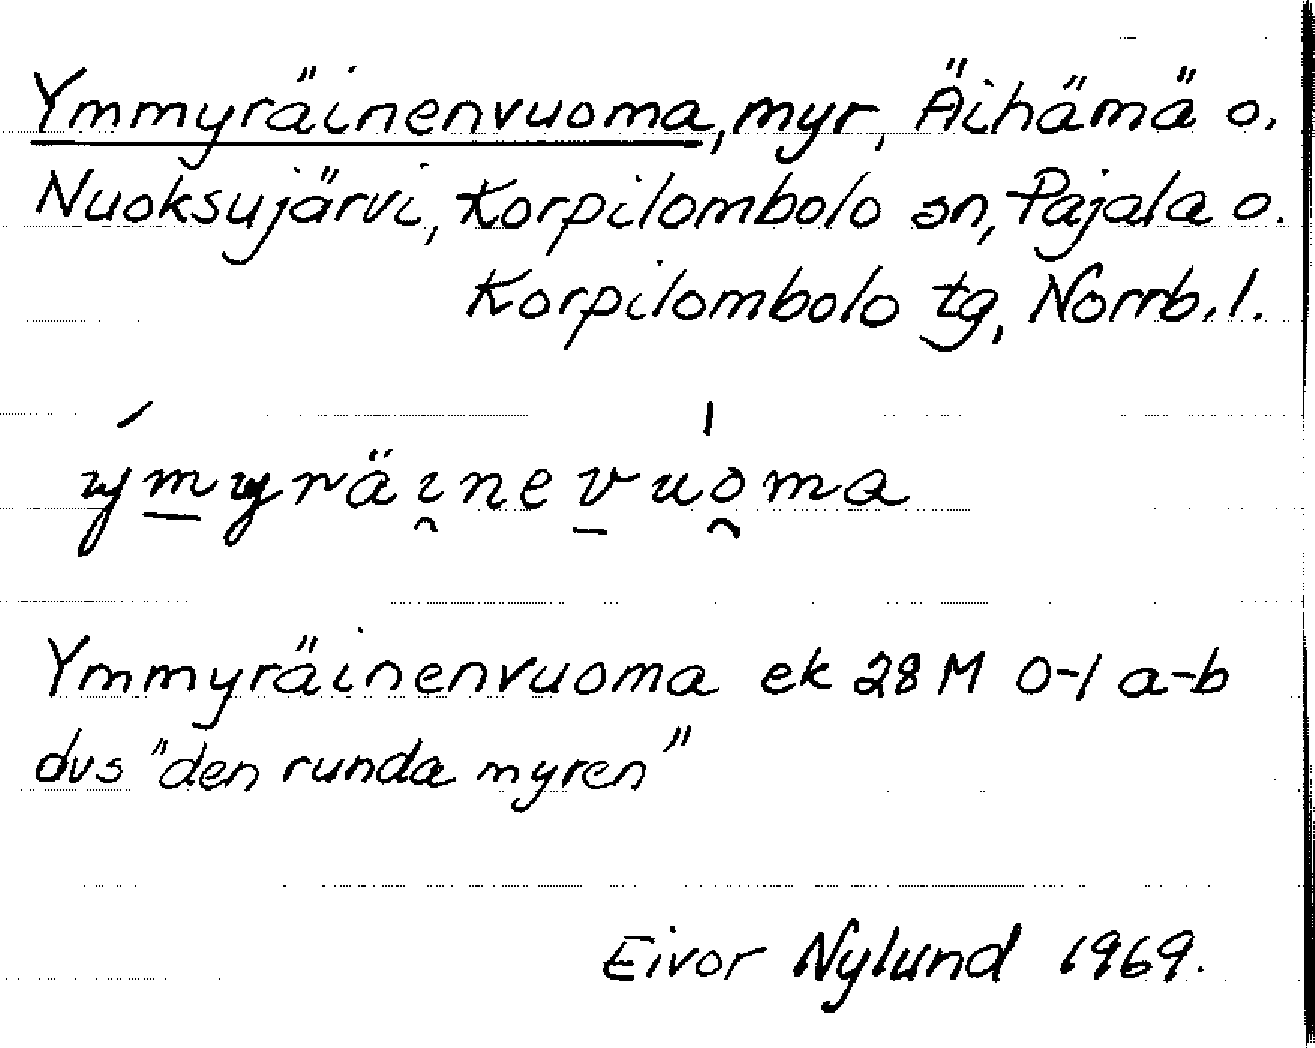 Ymmyräinenvuoma, myr, Äihämä o.
Nuoksujärvi, Korpilombolo sn, Pajala o.
Korpilombolo tg, Norrb. l.
ý m̲ y r ä i̯ n e v̲ u o̯̍ m a
Ymmyräinenvuoma ek 28 M 0-1 a-b
dvs "den runda myren"
Eivor Nylund 1969.